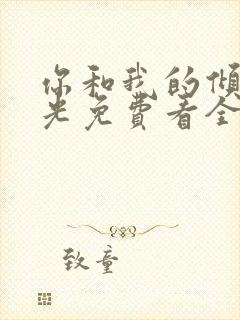 你和我的倾
光免费看全
致童